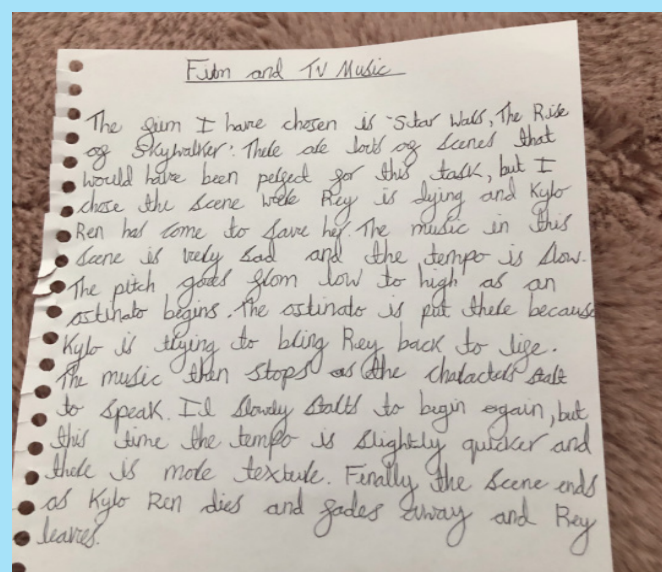 Film and TV Music
The film I have chosen is "Star Wars, The Rise
of Skywalker". There are lots of scenes that
would have been perfect for this task, but I
chose the scene were Rey is dying and Kylo
Ren has come to save her. The music in this
scene is very sad and the tempo is slow.
The pitch goes from low to high as an
ostinato begins. The ostinato is put there because
Kylo is trying to bring Rey back to life.
The music then stops as the characters start
to speak. It slowly starts to begin again, but
this time the tempo is slightly quicker and
there is more texture. Finally the scene ends
as Kylo Ren dies and fades away and Rey
leaves.